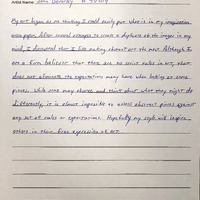 Artist Name: John Dornroy
My art began as me thinking I could easily put what is in my imagination
onto paper. After several attempts to create a duplicate of the images in my
mind, I discovered that I like making abstract art the most. Although I
am a firm believer that there are no strict rules in art, that
does not eliminate the expectations many have when looking at some
pieces. While some may observe and think about what may might do
differently, it is almost impossible to assess abstract pieces against
any set of rules or expectations. Hopefully my style will inspire
others in their free expression of art.